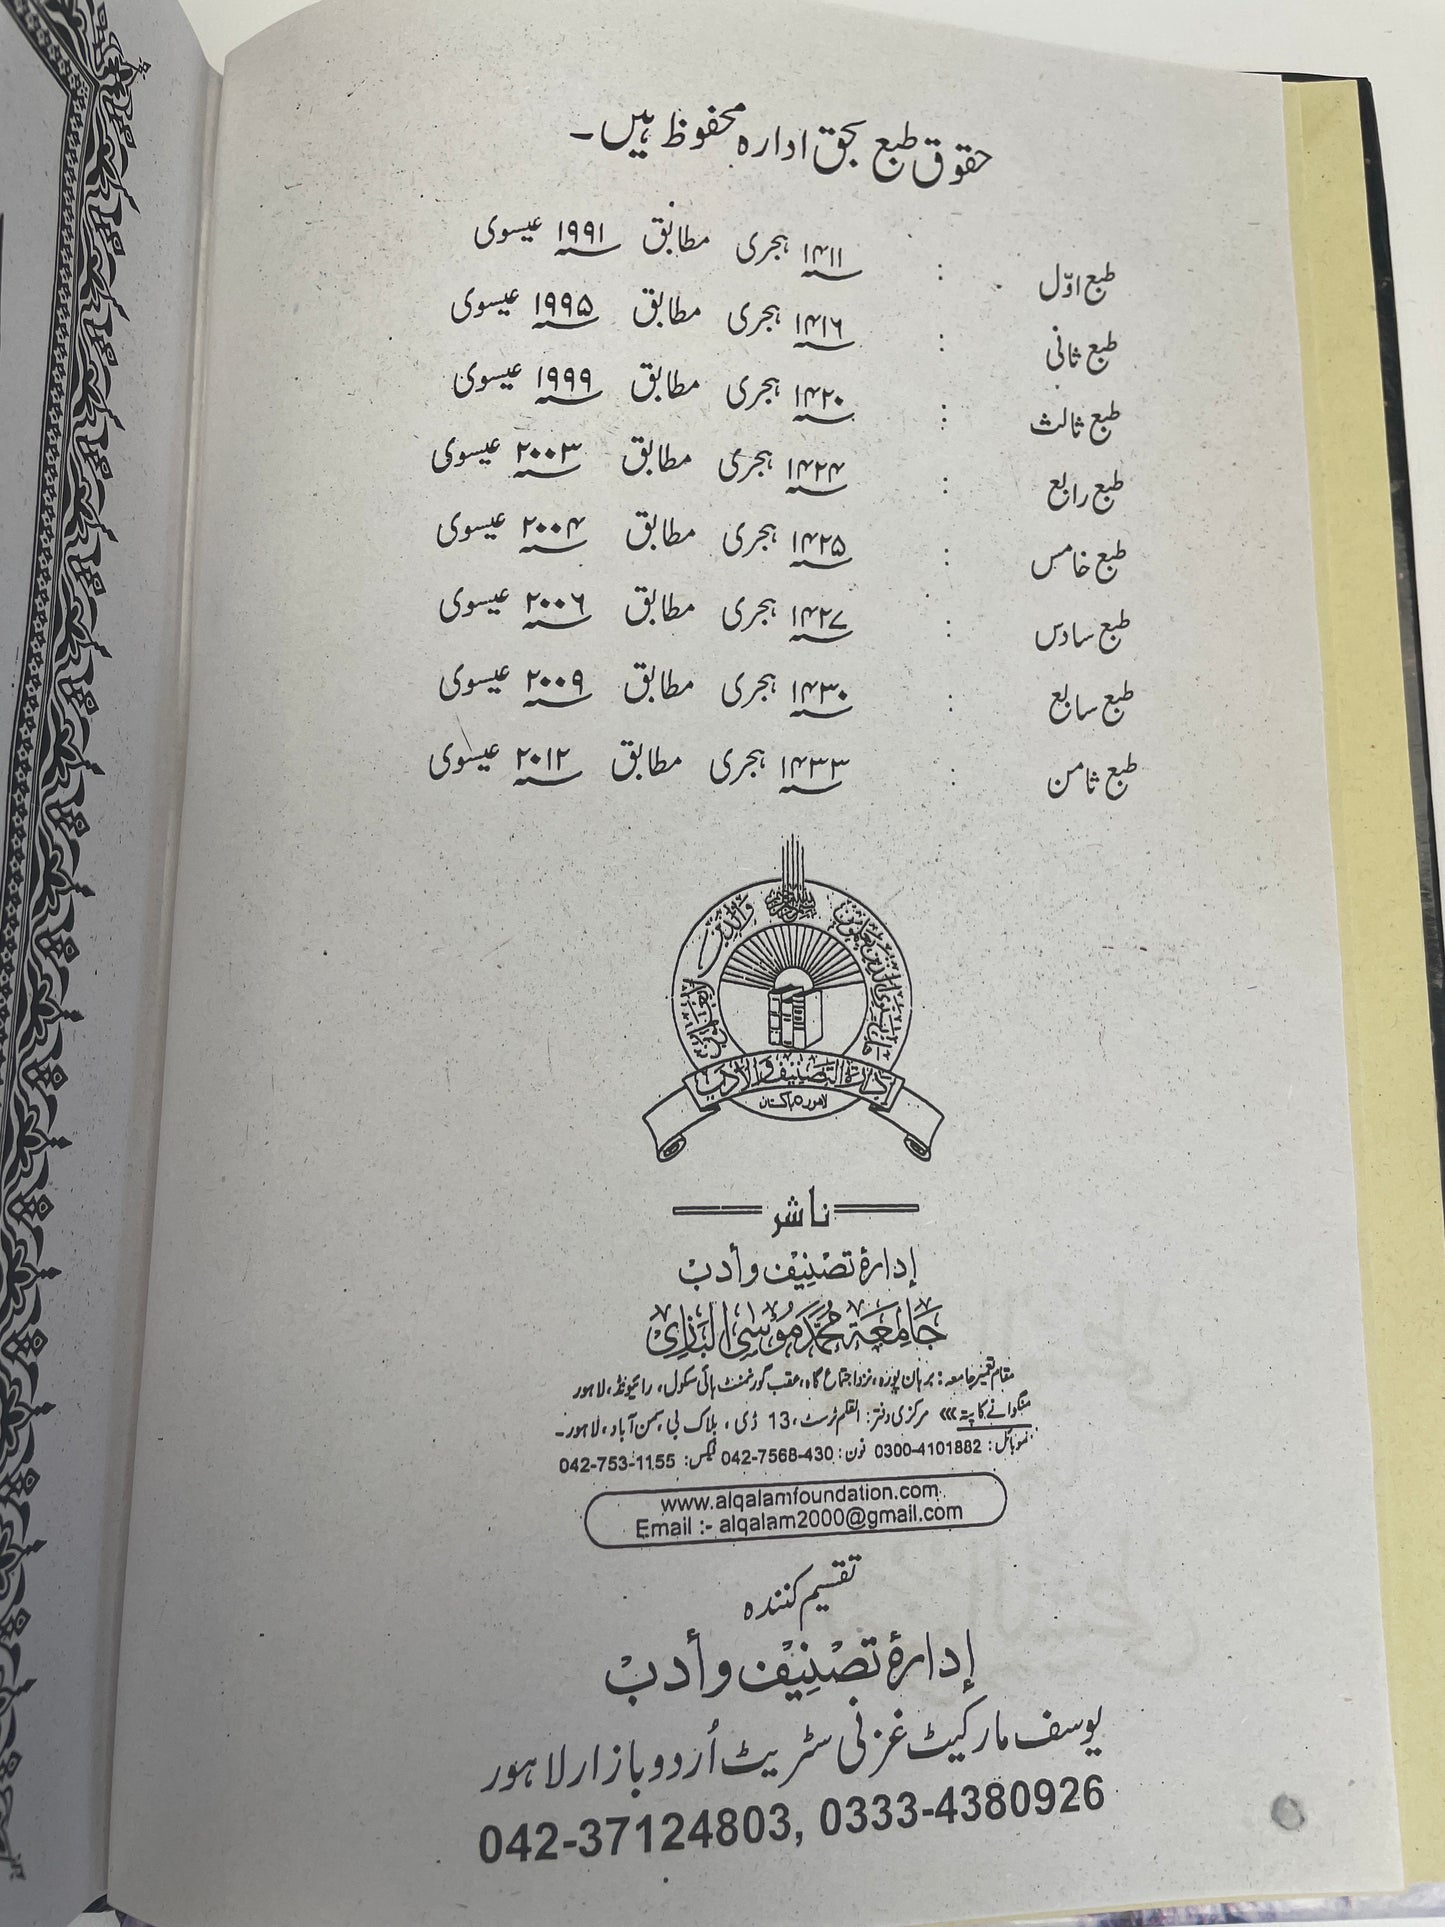 حقوق طبع بحق ادارہ محفوظ ہیں۔
طبع اوّل : ۱۴۱۱ ہجری مطابق ۱۹۹۱ عیسوی
طبع ثانی : ۱۴۱۶ ہجری مطابق ۱۹۹۵ عیسوی
طبع ثالث : ۱۴۲۰ ہجری مطابق ۱۹۹۹ عیسوی
طبع رابع : ۱۴۲۴ ہجری مطابق ۲۰۰۳ عیسوی
طبع خامس : ۱۴۲۵ ہجری مطابق ۲۰۰۴ عیسوی
طبع سادس : ۱۴۲۷ ہجری مطابق ۲۰۰۶ عیسوی
طبع سابع : ۱۴۳۰ ہجری مطابق ۲۰۰۹ عیسوی
طبع ثامن : ۱۴۳۳ ہجری مطابق ۲۰۱۲ عیسوی
إدارة التصنيف والأدب
لاہور پاکستان
ناشر
إدارۂ تصنیف و أدب
جامعة محمد موسى البازي
مقام تعمیر جامعہ: برہان پورہ، نزد اجتماع گاہ، عقب گورنمنٹ ہائی سکول، رائیونڈ، لاہور
منگوانے کا پتہ ⟫⟫ مرکزی دفتر: القلم ٹرسٹ، 13 ڈی، بلاک بی، سمن آباد، لاہور۔
موبائل: 0300-4101882 فون: 042-7568-430 فیکس: 042-753-1155
www.alqalamfoundation.com
Email :- alqalam2000@gmail.com
تقسیم کنندہ
إدارۂ تصنیف و أدب
یوسف مارکیٹ غزنی سٹریٹ اُردو بازار لاہور
042-37124803, 0333-4380926